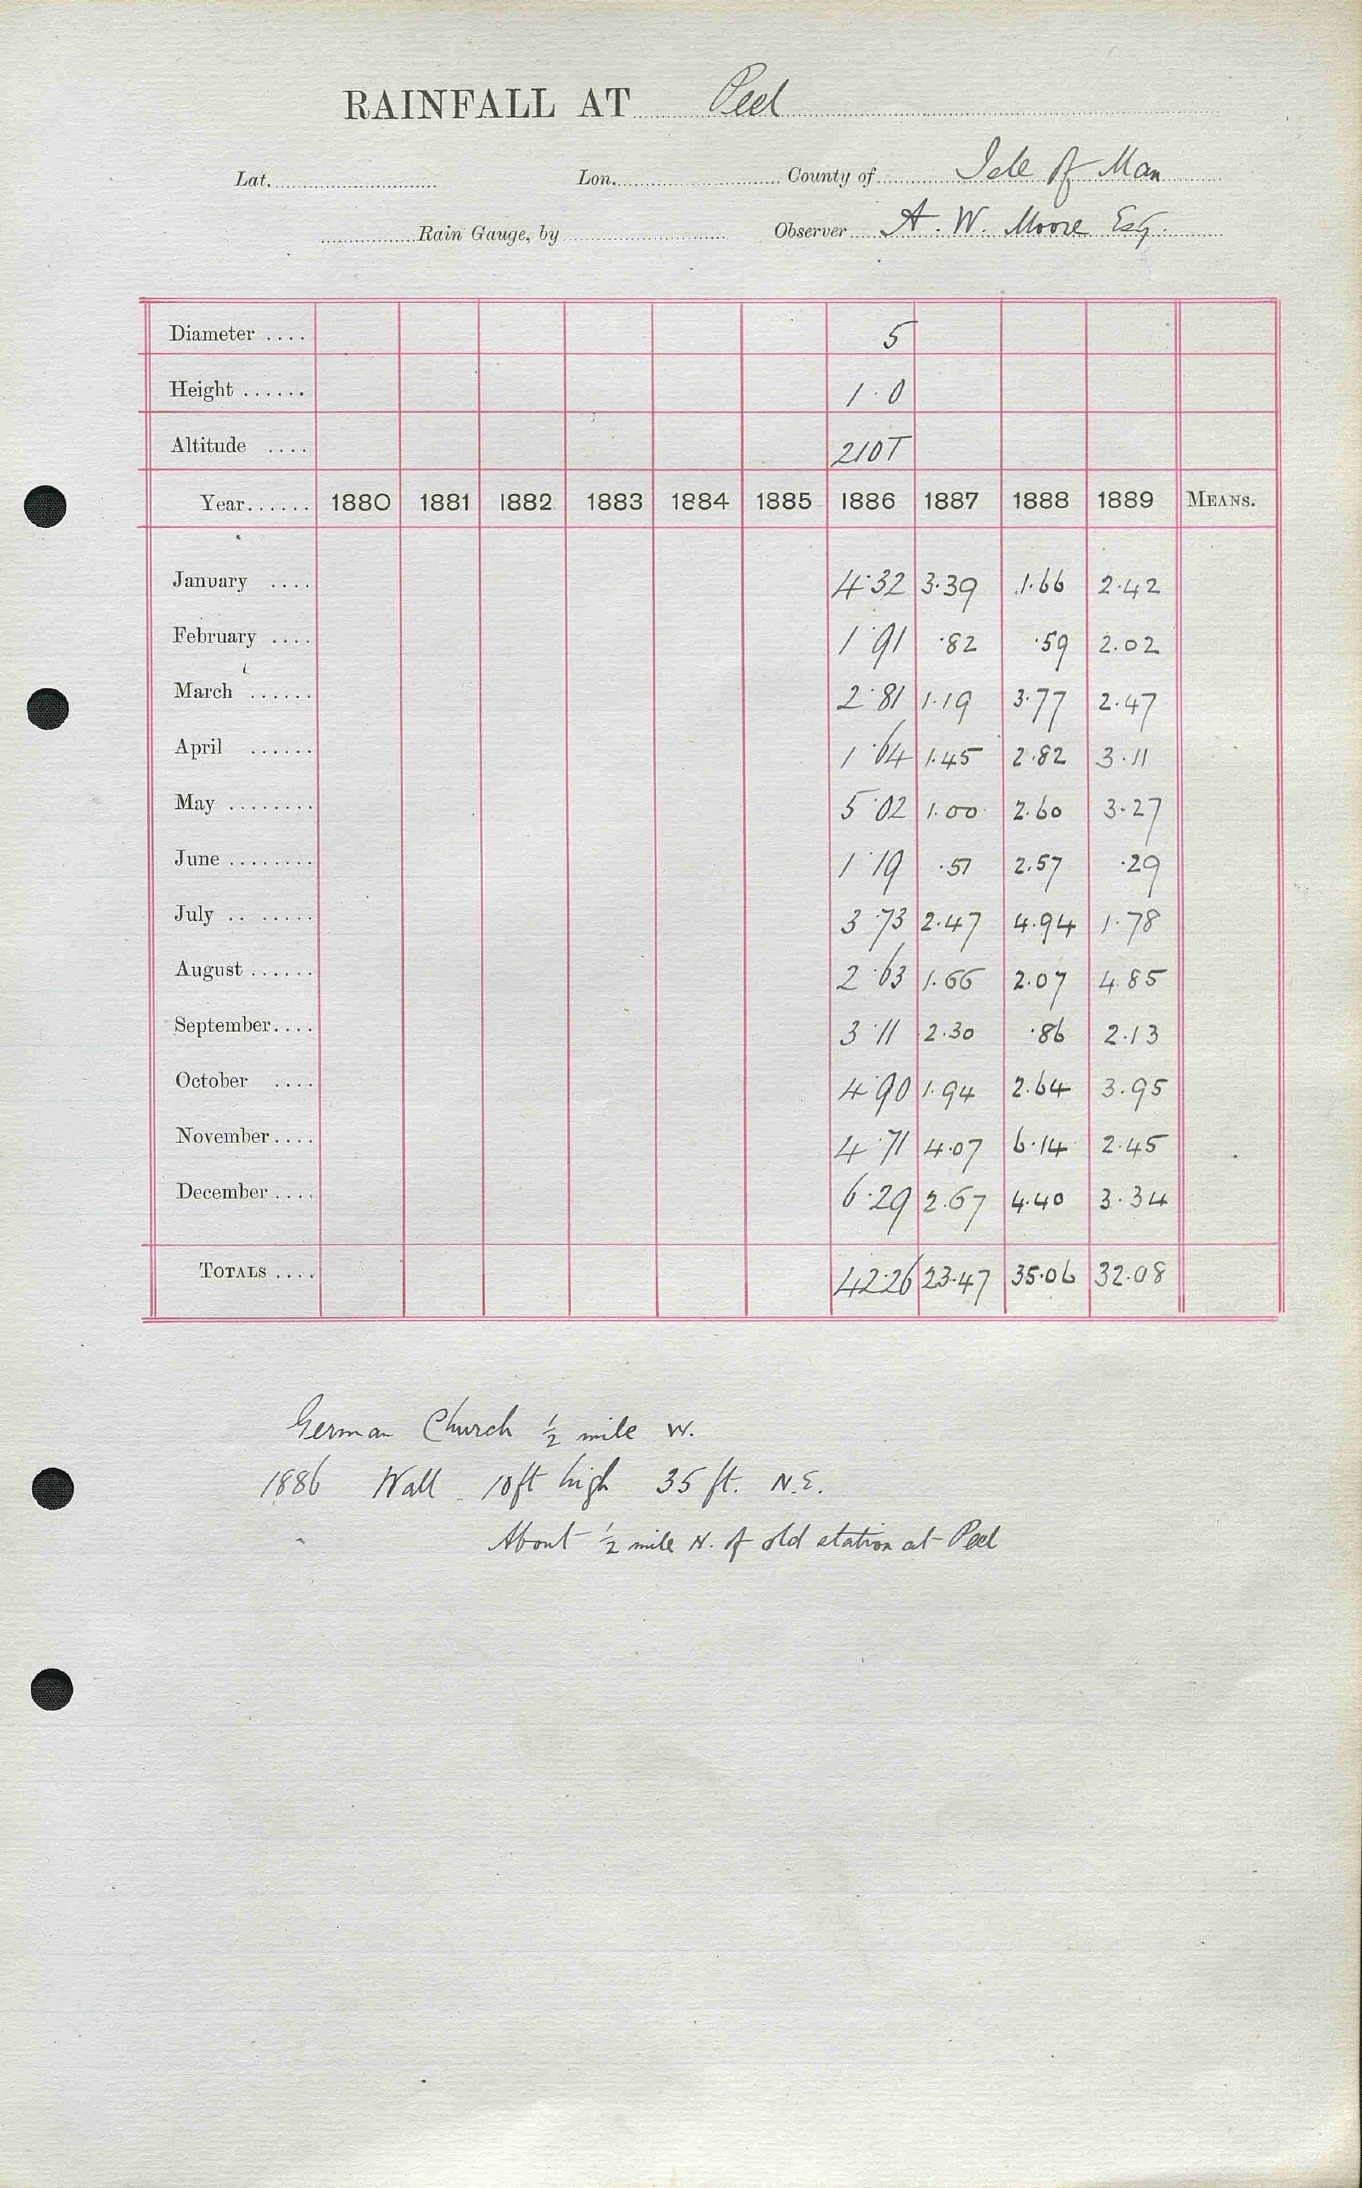 RAINFALL AT Peel
Lat. Lon. County of Isle of Man
Rain Gauge, by Observer A. W. Moore Esq.
Diameter .... 5
Height ...... 1.0
Altitude .... 210T
Year...... 1880 1881 1882 1883 1884 1885 1886 1887 1888 1889 MEANS.
January .... 4.32 3.39 1.66 2.42
February .... 1.91 .82 .59 2.02
March ...... 2.81 1.19 3.77 2.47
April ...... 1.64 1.45 2.82 3.11
May ........ 5.02 1.00 2.60 3.27
June ........ 1.19 .51 2.57 .29
July .. ..... 3.73 2.47 4.94 1.78
August ...... 2.63 1.66 2.07 4.85
September.... 3.11 2.30 .86 2.13
October .... 4.90 1.94 2.64 3.95
November.... 4.71 4.07 6.14 2.45
December .... 6.29 2.67 4.40 3.34
TOTALS .... 42.26 23.47 35.06 32.08
German Church ½ mile W.
1886 Wall 10ft high 35 ft. N.E.
About ½ mile N. of old station at Peel